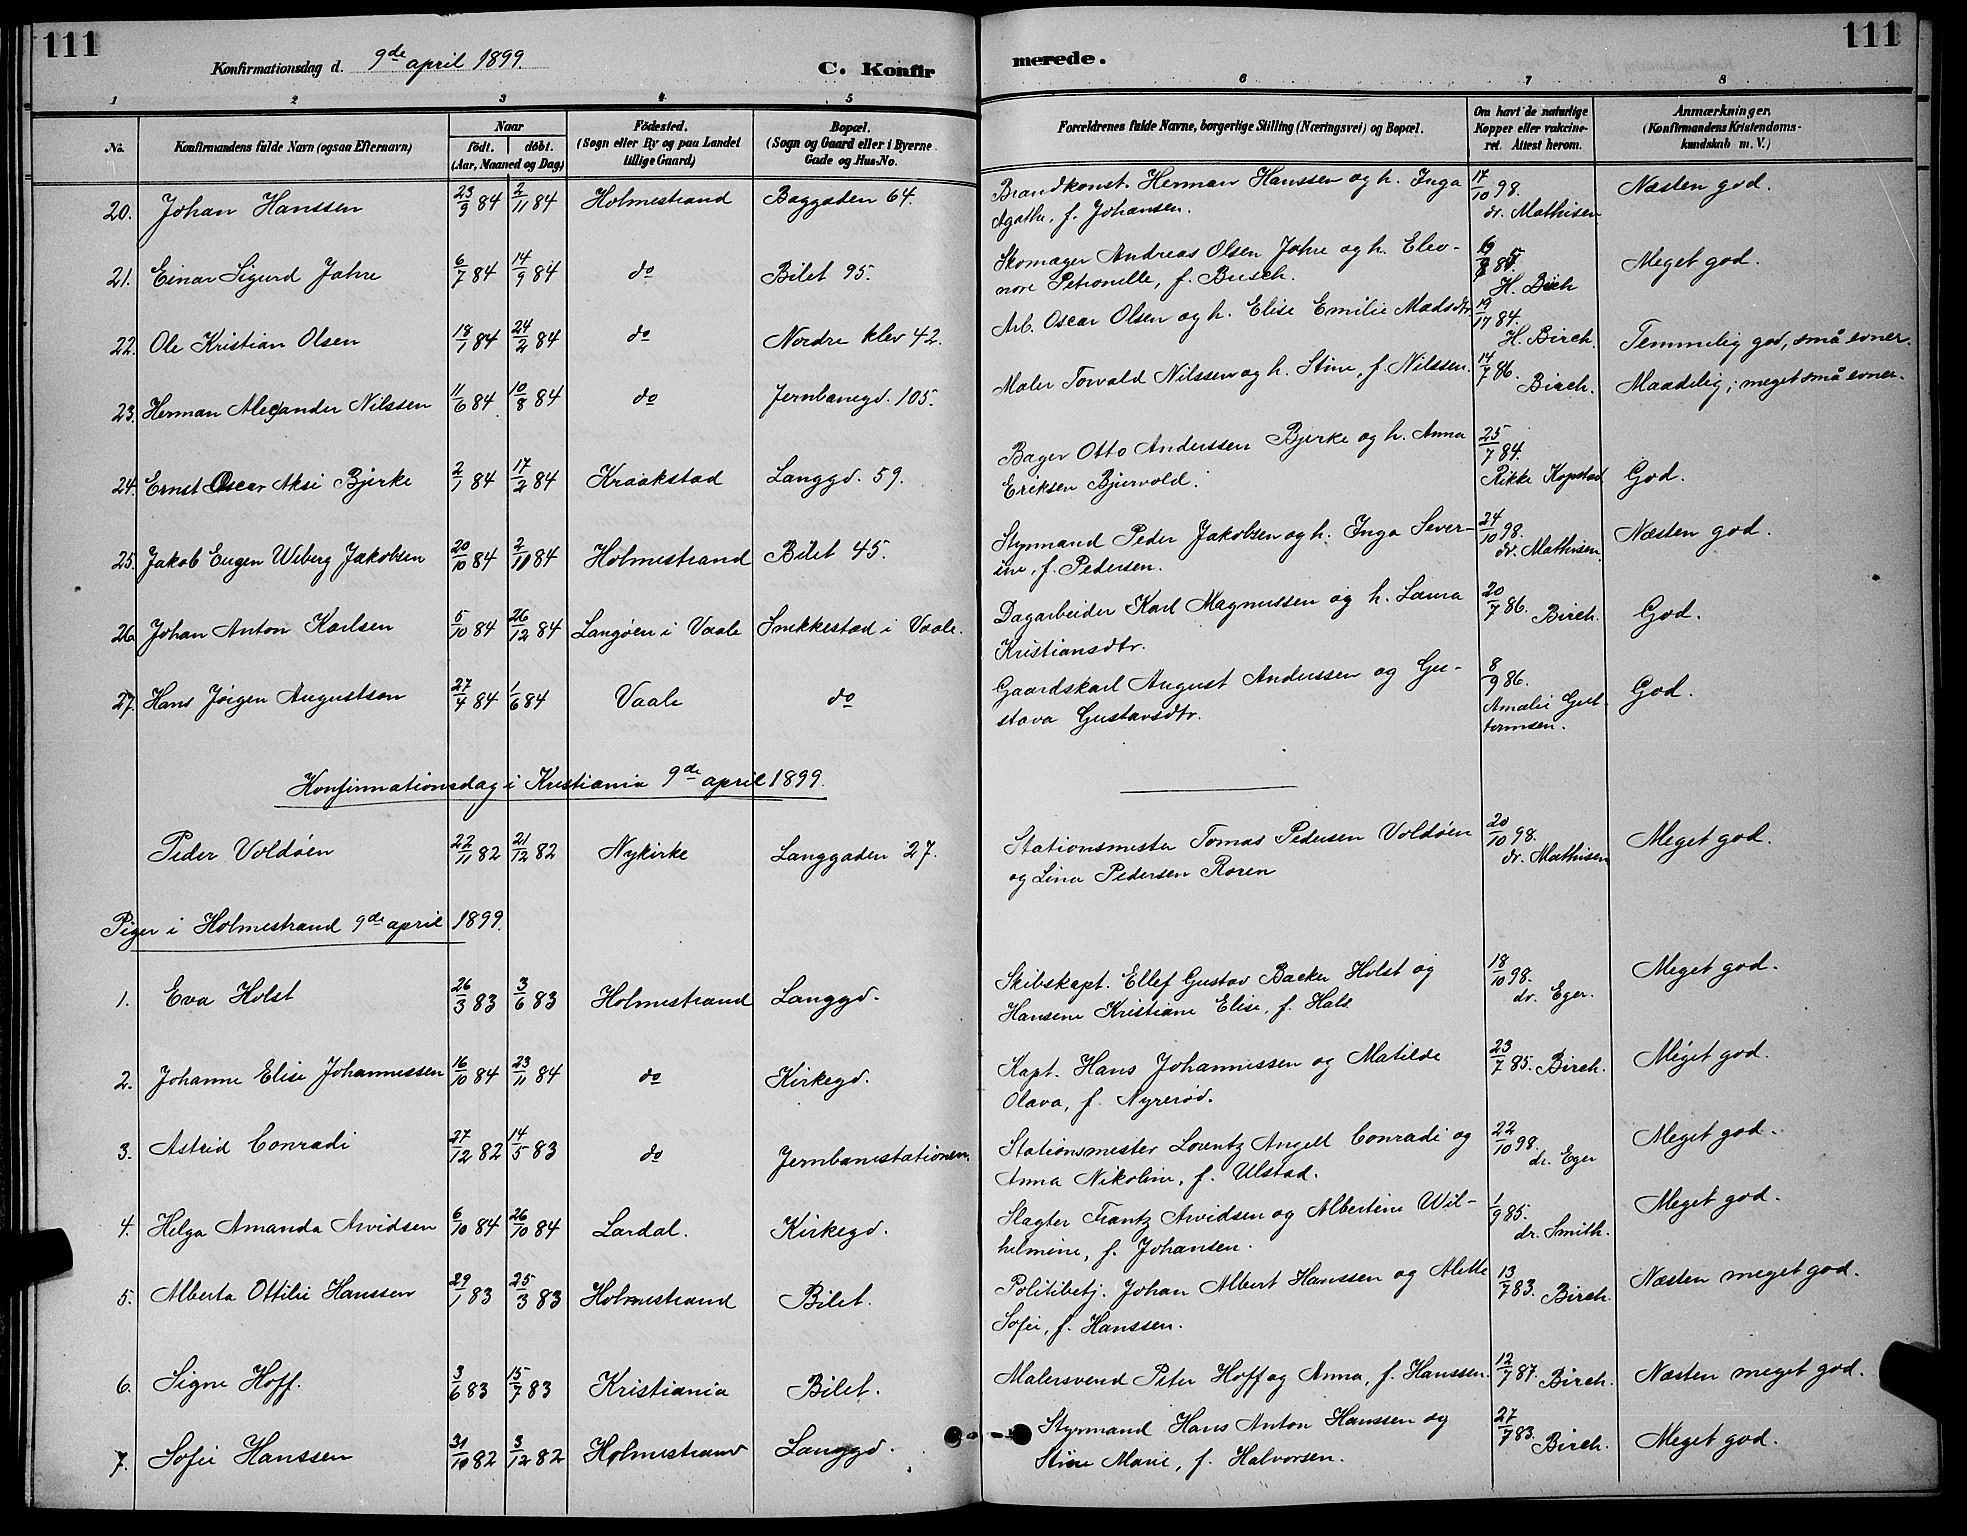 111
Konfirmationsdag d. 9de april 1899.
C. Konfir
merede.
111
1 2 3 4 5 6 7 8
No.
Konfirmandens fulde Navn (ogsaa Efternavn)
Naar
födt. döbt.
(Aar, Maaned og Dag)
Födested.
(Sogn eller By og paa Landet
tillige Gaard)
Bopæl.
(Sogn og Gaard eller i Byerne
Gade og Hus-No.
Forældrenes fulde Navne, borgerlige Stilling (Næringsvei) og Bopæl.
Om havt de naturlige
Kopper eller vakcine-
ret. Attest herom.
Anmærkninger.
(Konfirmandens Kristendoms-
kundskab m. V.)
20. Johan Hanssen 23/9 84 2/11 84 Holmestrand Baggaden 64. Brandkonst. Herman Hanssen og h. Inga 17/10 98. Næsten god.
Agathe, f. Johansen. dr. Mathisen
21. Einar Sigurd Jahre 6/7 84 14/9 84 do Bilet 95. Skomager Andreas Olsen Jahre og h. Eleo- Meget god.
nore Petronelle, f. Busch. H. Birch
22. Ole Kristian Olsen 18/1 84 24/2 84 do Nordre klev 42. Arb. Oscar Olsen og h. Elise Emilie Madsdtr 84. Temmelig god, små evner.
H. Birch.
23. Herman Alexander Nilssen 11/6 84 10/8 84 do Jernbanegd. 105. Maler Torvald Nilssen og h. Stine, f. Nilssen. 14/7 86. Birch. Maadelig; meget små evner.
24. Ernst Oscar Aksi Bjerke 2/1 84 17/2 84 Kraakstad Langgd. 59. Bager Otto Anderssen Bjerke og h. Anna 25/7 84. God.
Eriksen Bjervold. Rikke Kopstad
25. Jakob Eugen Weberg Jakobsen 20/10 84 2/11 84 Holmestrand Bilet 45. Styrmand Peder Jakobsen og h. Inga Sever- 24/10 98. Næsten god.
ine, f. Pedersen. dr. Mathisen
26. Johan Anton Karlsen 5/10 84 26/12 84 Langøen i Vaale Smekkestad i Vaale. Dagarbeider Karl Magnussen og h. Laura 20/7 86. Birch. God.
Kristiansdtr.
27. Hans Jørgen Augustson 27/4 84 1/6 84 Vaale do Gaardskarl August Anderssen og Gu- 8/9 86. God.
stava Gustavsdtr. Amalie Gut-
tormsen.
Konfirmationsdag i Kristiania 9de april 1899.
Peder Voldøen 22/11 82 21/12 82 Nykirke Langgaden 27. Stationsmester Tomas Pedersen Voldøen 20/10 98. Meget god.
og Lina Pedersen Roren dr. Mathisen
Piger i Holmestrand 9de april 1899.
1. Eva Holst 26/3 83 3/6 83 Holmestrand Langgd. Skibskapt. Ellef Gustav Backer Holst og 18/10 98. Meget god.
Hansene Kristiane Elise, f. Hals dr. Eger.
2. Johanne Elise Johannessen 16/10 84 23/11 84 do Kirkegd. Kapt. Hans Johannissen og Matilde 23/7 85. Birch. Meget god.
Olava, f. Nyrerød.
3. Astrid Conradi 27/12 82 14/5 83 do Jernbanestationen. Stationsmester Lorentz Angell Conradi og 22/10 98. Meget god.
Anna Nikoline, f. Ulstad. dr. Eger
4. Helga Amanda Arvidsen 6/10 84 26/10 84 Lardal. Kirkegd. Slagter Frantz Arvidsen og Albertine Wil- 1/9 85. Meget god.
helmine, f. Johansen. dr. Smith.
5. Alberta Ottilie Hanssen 29/1 83 25/3 83 Holmestrand Bilet. Politibetj. Johan Albert Hanssen og Alette 13/7 83. Birch. Næsten meget god.
Sofie, f. Hanssen.
6. Signe Hoff. 3/6 83 15/7 83 Kristiania Bilet. Malersvend Peter Hoff og Anna, f. Hanssen. 12/7 87. Birch. Næsten meget god.
7. Sofie Hanssen 31/10 82 3/12 82 Holmestrand Langgd. Styrmand Hans Anton Hanssen og 27/7 83. Birch. Meget god.
Stine Marie, f. Halvorsen.